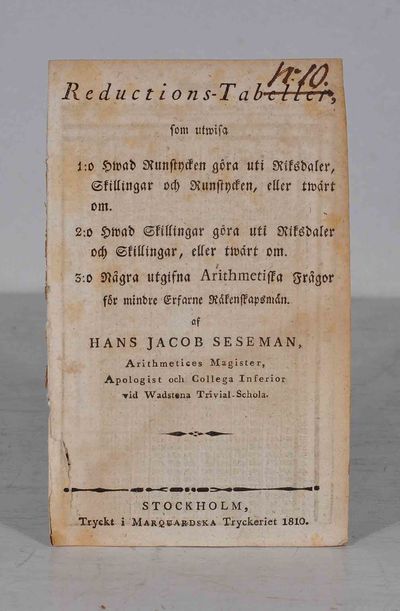 N:o 10.
Reductions-Tabeller,
som utwisa
1:o Hwad Runstycken göra uti Riksdaler,
Skillingar och Runstycken, eller twärt
om.
2:o Hwad Skillingar göra uti Riksdaler
och Skillingar, eller twärt om.
3:o Några utgifna Arithmetiska Frågor
för mindre Erfarne Räkenskapsmän.
af
HANS JACOB SESEMAN,
Arithmetices Magister,
Apologist och Collega Inferior
vid Wadstena Trivial-Schola.
STOCKHOLM,
Tryckt i MARQUARDSKA Tryckeriet 1810.